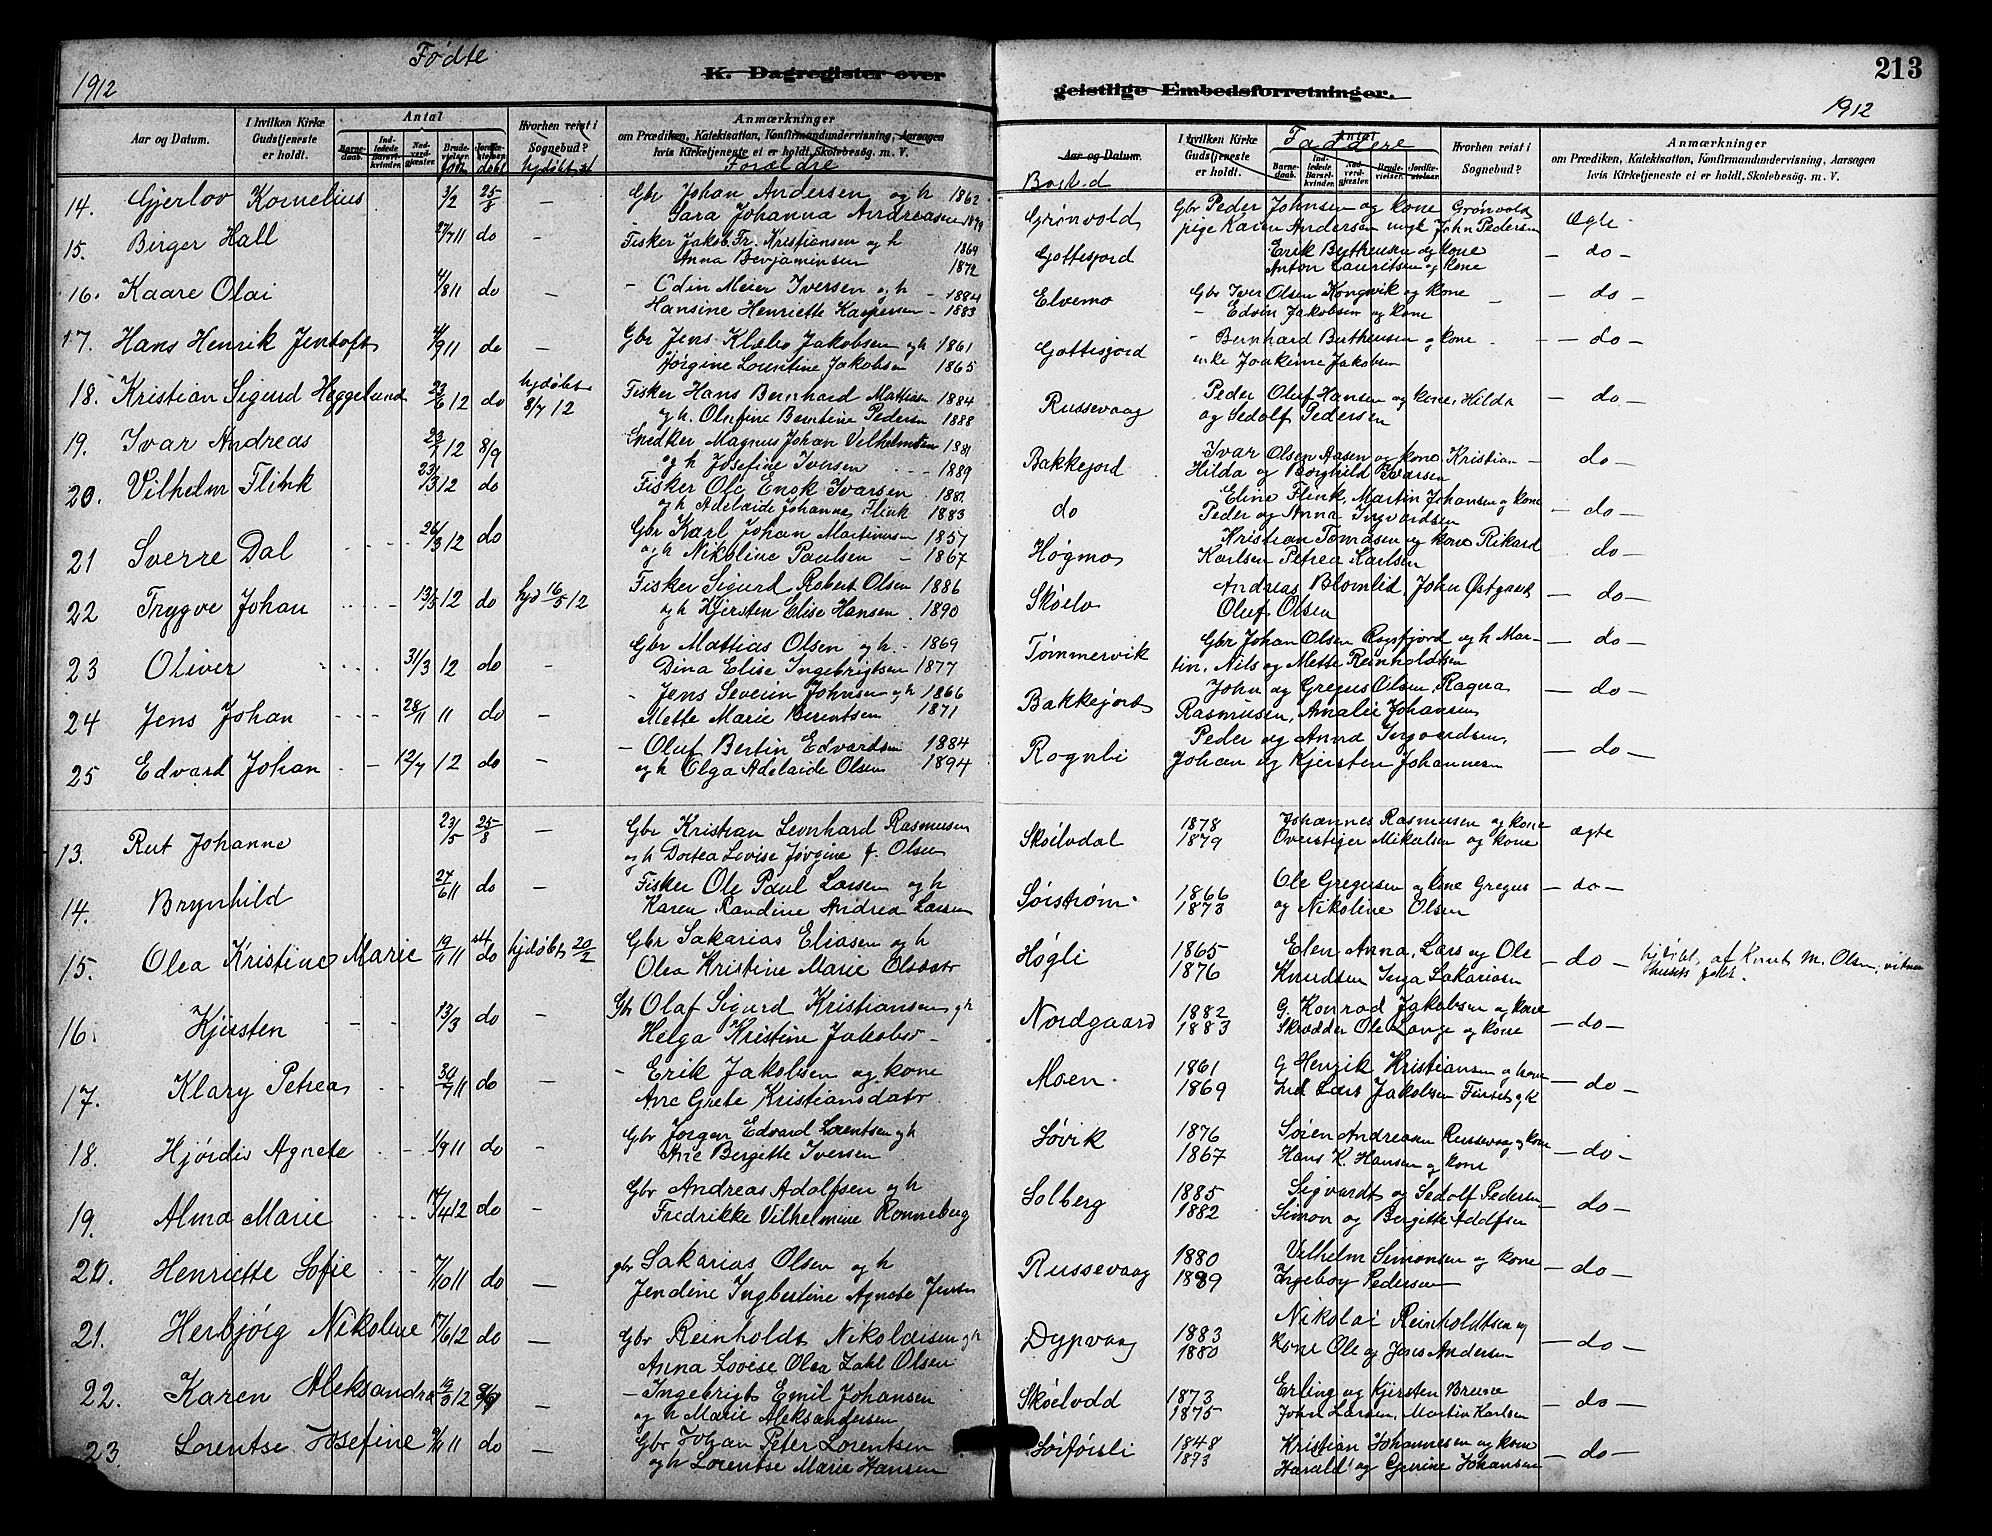 1912
Fødte
K. Dagregister over
geistlige Embedsforretninger.
213
1912
Aar og Datum.
I hvilken Kirke Gudstjeneste er holdt.
Antal
Barnedaab.
Indledede Barselkvinder.
Nadverdgjæster.
Brudevielser.
Jordfæstelser.
født
døbt
Hvorhen reist i Sognebud?
hjdøbt
Anmærkninger
om Prædiken, Katekisation, Konfirmandundervisning, Aarsagen
hvis Kirketjeneste ei er holdt, Skolebesøg. m. V.
Forældre
Aar og Datum.
Bosted
I hvilken Kirke Gudstjeneste er holdt.
Antal
Faddere
Barnedaab.
Indledede Barselkvinder.
Nadverdgjæster.
Brudevielser.
Jordfæstelser.
Hvorhen reist i Sognebud?
Anmærkninger
om Prædiken, Katekisation, Konfirmandundervisning, Aarsagen
hvis Kirketjeneste ei er holdt, Skolebesøg. m. V.
14. Gjerlov Kornelius 3/2 25/8 Gbr Johan Andersen og h 1862
Sara Johanna Andreasen
Grønvold Gbr Peder Johnsen og kone Grønvold Ægte
pige Karen Andersen ungk John Pedersen
15. Birger Hall 27/7 11 do - Fisker Jakob Fr. Kristiansen og h 1864
Anna Benjaminsen 1872
Gottesjord Erik Bertheusen og kone - do -
Anton Lauritsen og kone
16. Kaare Olai 4/8 11 do - - Odin Meier Iversen og h - 1884
Hansine Henriette Kaspersen - 1883
Elvemo Gbr Iver Olsen Kongsvik og kone - do -
- Edvin Jakobsen og kone
17. Hans Henrik Jentoft 4/9 11 do - Gbr Jens Klæbo Jakobsen og h 1861
Jørgine Lorentine Jakobsen 1865
Gottesjord - Bernhard Bertheusen og kone - do -
enke Joakime Jakobsen
18. Kristian Sigurd Heggelund 23/6 12 do hjdøbt 8/7 12 Fisker Hans Bernhard Mattisen 1884
og h. Olufine Berntine Pedersen 1888
Russevaag Peder Oluf Hansen og kone, Hilda - do -
og Sedolf Pedersen
19. Ivar Andreas 23/7 12 8/9 Snedker Magnus Johan Vilhelmsen 1881
og h Josefine Iversen 1889
Bakkejord Ivar Olsen Aasen og kone Kristian - do -
Hilda og Borghild Evarsen
20. Vilhelm Flink 23/3 12 do Fisker Ole Enok Ivarsen
og h Adelaide Johanne Flink 1883
do Eline Flink, Martin Johansen og kone - do -
Peder og Anna Ingvardsen
21 Sverre Dal 26/3 12 do Gbr Karl Johan Martinusen 1857
og h Nikoline Paulsen - 1867
Høgmo Kristian Tomasen og kone Rikard do -
Karlsen Petrea Karlsen
22 Trygve Johan 13/3 12 do hjd 16/5 12 Fisker Sigurd Robert Olsen 1886
og h Kjersten Elise Hansen 1890
Skøelv Andreas Blomlid, John Østgaard - do -
Oluf Olsen
23 Oliver 31/3 12 do - Gbr Mattias Olsen og h. 1869
Dina Elise Ingebrigtsen 1877
Tømmervik Gbr Johan Olsen Rogsfjord og h Mar- - do -
tin, Nils og Mette Reinholdtsen
24 Jens Johan 28/11 11 do - - Jens Severin Johnsen og h 1866
Mette Marie Berentsen 1871
Bakkejord John og Gregus Olsen, Ragna - do -
Rasmusen, Amalie Johansen
25 Edvard Johan 12/7 12 do - - Oluf Bertin Edvardsen 1884
og h Olga Adelaide Olsen 1894
Rognli Peder og Anna Ingvardsen, - do -
Johan og Kjersten Johannesen
13. Rut Johanne 23/5 25/8 - Gbr Kristian Leonhard Rasmusen
og h Dortea Lovise Jørgine f. Olsen
Skøelvdal 1878 1879 Johannes Rasmusen og kone ægte
Overstiger Mikalsen og kone
14. Brynhild 27/6 11 do - Fisker Ole Paul Larsen og h
Karen Randine Andrea Larsen
Sørstrøm 1866 1873 Ole Gregusen og Lene Gregus - do -
og Nikoline Olsen
15. Olea Kristine Marie 19/11 11 st do hjdøbt 20/2 Gbr Sakarias Eliasen og h
Olea Kristine Marie Olsdatr
Høgli 1865 1876 Elen Anna, Lars og Ole - do - hjdøbt af Knut M. Olsen
Knudsen Inga Sakariasen
16. Kjersten 13/3 do - Gbr Olaf Sigurd Kristiansen og h
Helga Kristine Jakobsd -
Nordgaard 1882 1883 G. Konrad Jakobsen og kone - do -
Skrædder Ole Lange og kone
17. Klary Petrea 30/7 11 do - - Erik Jakobsen og kone
Ane Grete Kristiansdatr
Moen 1861 1869 G Henrik Kristiansen og kone - do -
Ind Lars Jakobsen Finset og k
18. Hjørdis Agnete 1/9 11 do - Gbr Jørgen Edvard Lorentsen og h
Ane Bergette Iversen
Løvik 1876 1867 Søren Andreasen Russevaag og kone - do -
Hans K. Hansen og kone
19. Alma Marie 14/4 12 do - Gbr Andreas Adolfsen og h
Fredrikke Vilhelmine Ronneberg
Solberg 1885 1882 Sigvardt og Sedolf Pedersen - do -
Simon og Bergitte Adolfsen
20. Henriette Sofie 7/10 11 do - gbr Sakarias Olsen og h
Jendine Ingbertine Agnete Jensen
Russevaag 1880 1889 Vilhelm Simonsen og kone - do -
Ingeborg Pedersen
21. Herbjørg Nikoline 17/6 12 do - Gbr Reinholdt Nikolaisen og h
Anna Lovise Olea Zahl Olsen
Dypvaag 1883 1880 Nikolai Reinholdtsen og - do -
kone Ole og Jens Andersen
22. Karen Aleksandra 19/3 12 8/9 - - Ingebrigt Emil Johansen
og h Marie Aleksandersen
Skøelvdd 1873 1875 Erling og Kjersten Brune - do -
John Larsen, Martin Karlsen
23. Lorentse Josefine 9/11 11 do - Gbr Johan Peter Lorentsen
og h Lorentse Marie Hansen
Sørførsli 1848 1873 Kristian Johannesen og kone - do -
Harald og Gurine Johansen